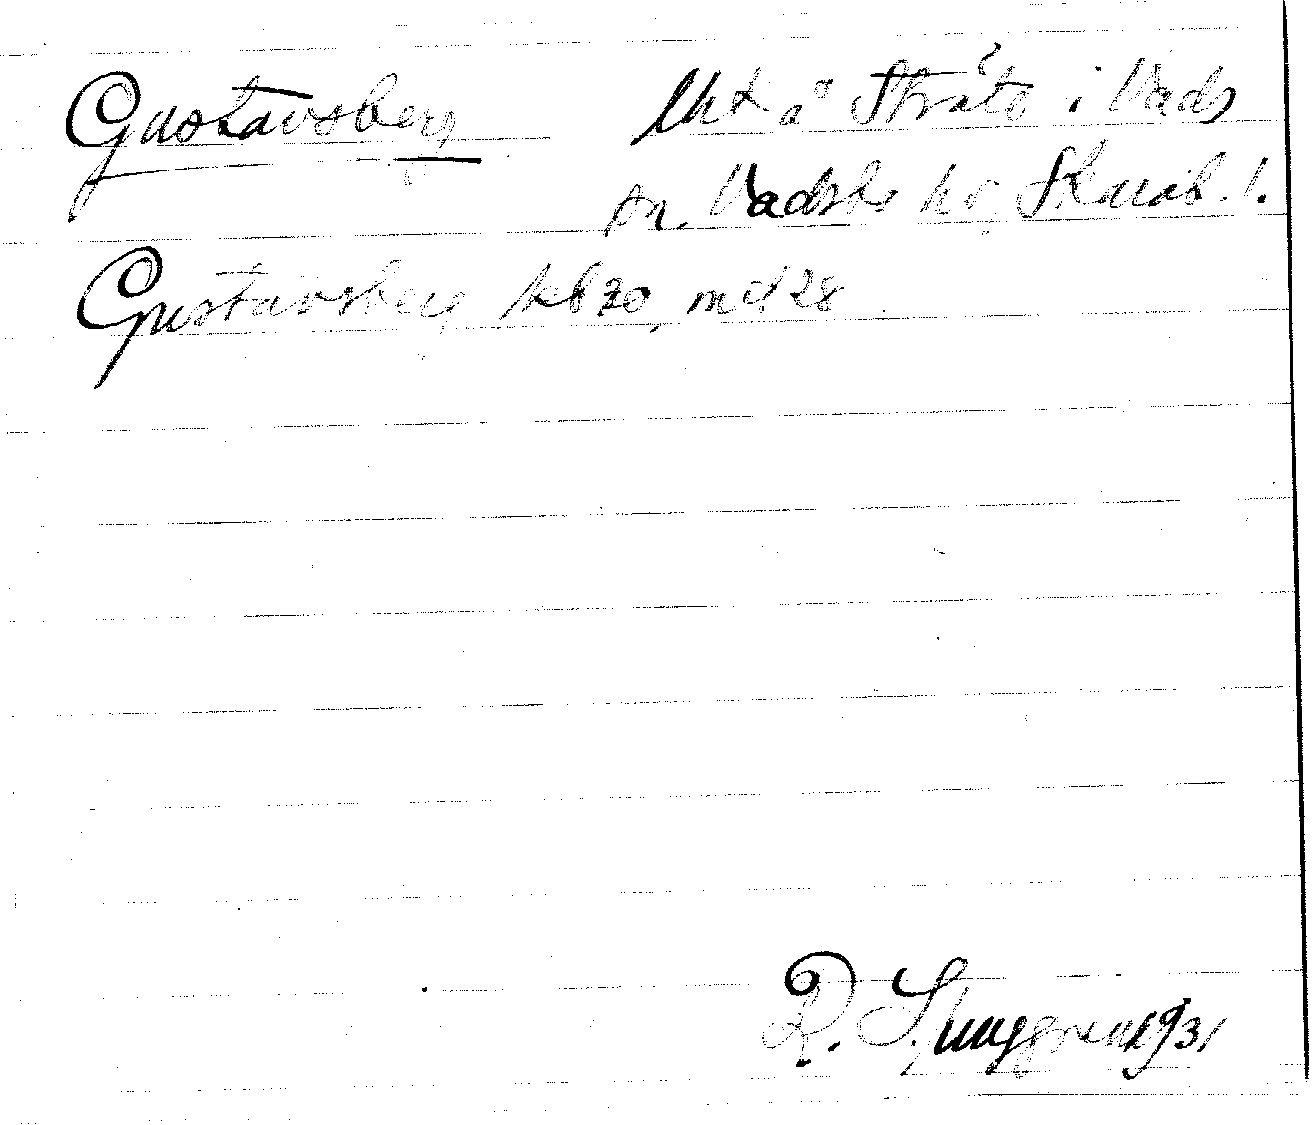 Gustavsberg Utx å Stråtö i Vads
sn. Vadsbo hd, Skarab. l.
Gustavsberg kb 20, md 28
R. Ljunggren 1931